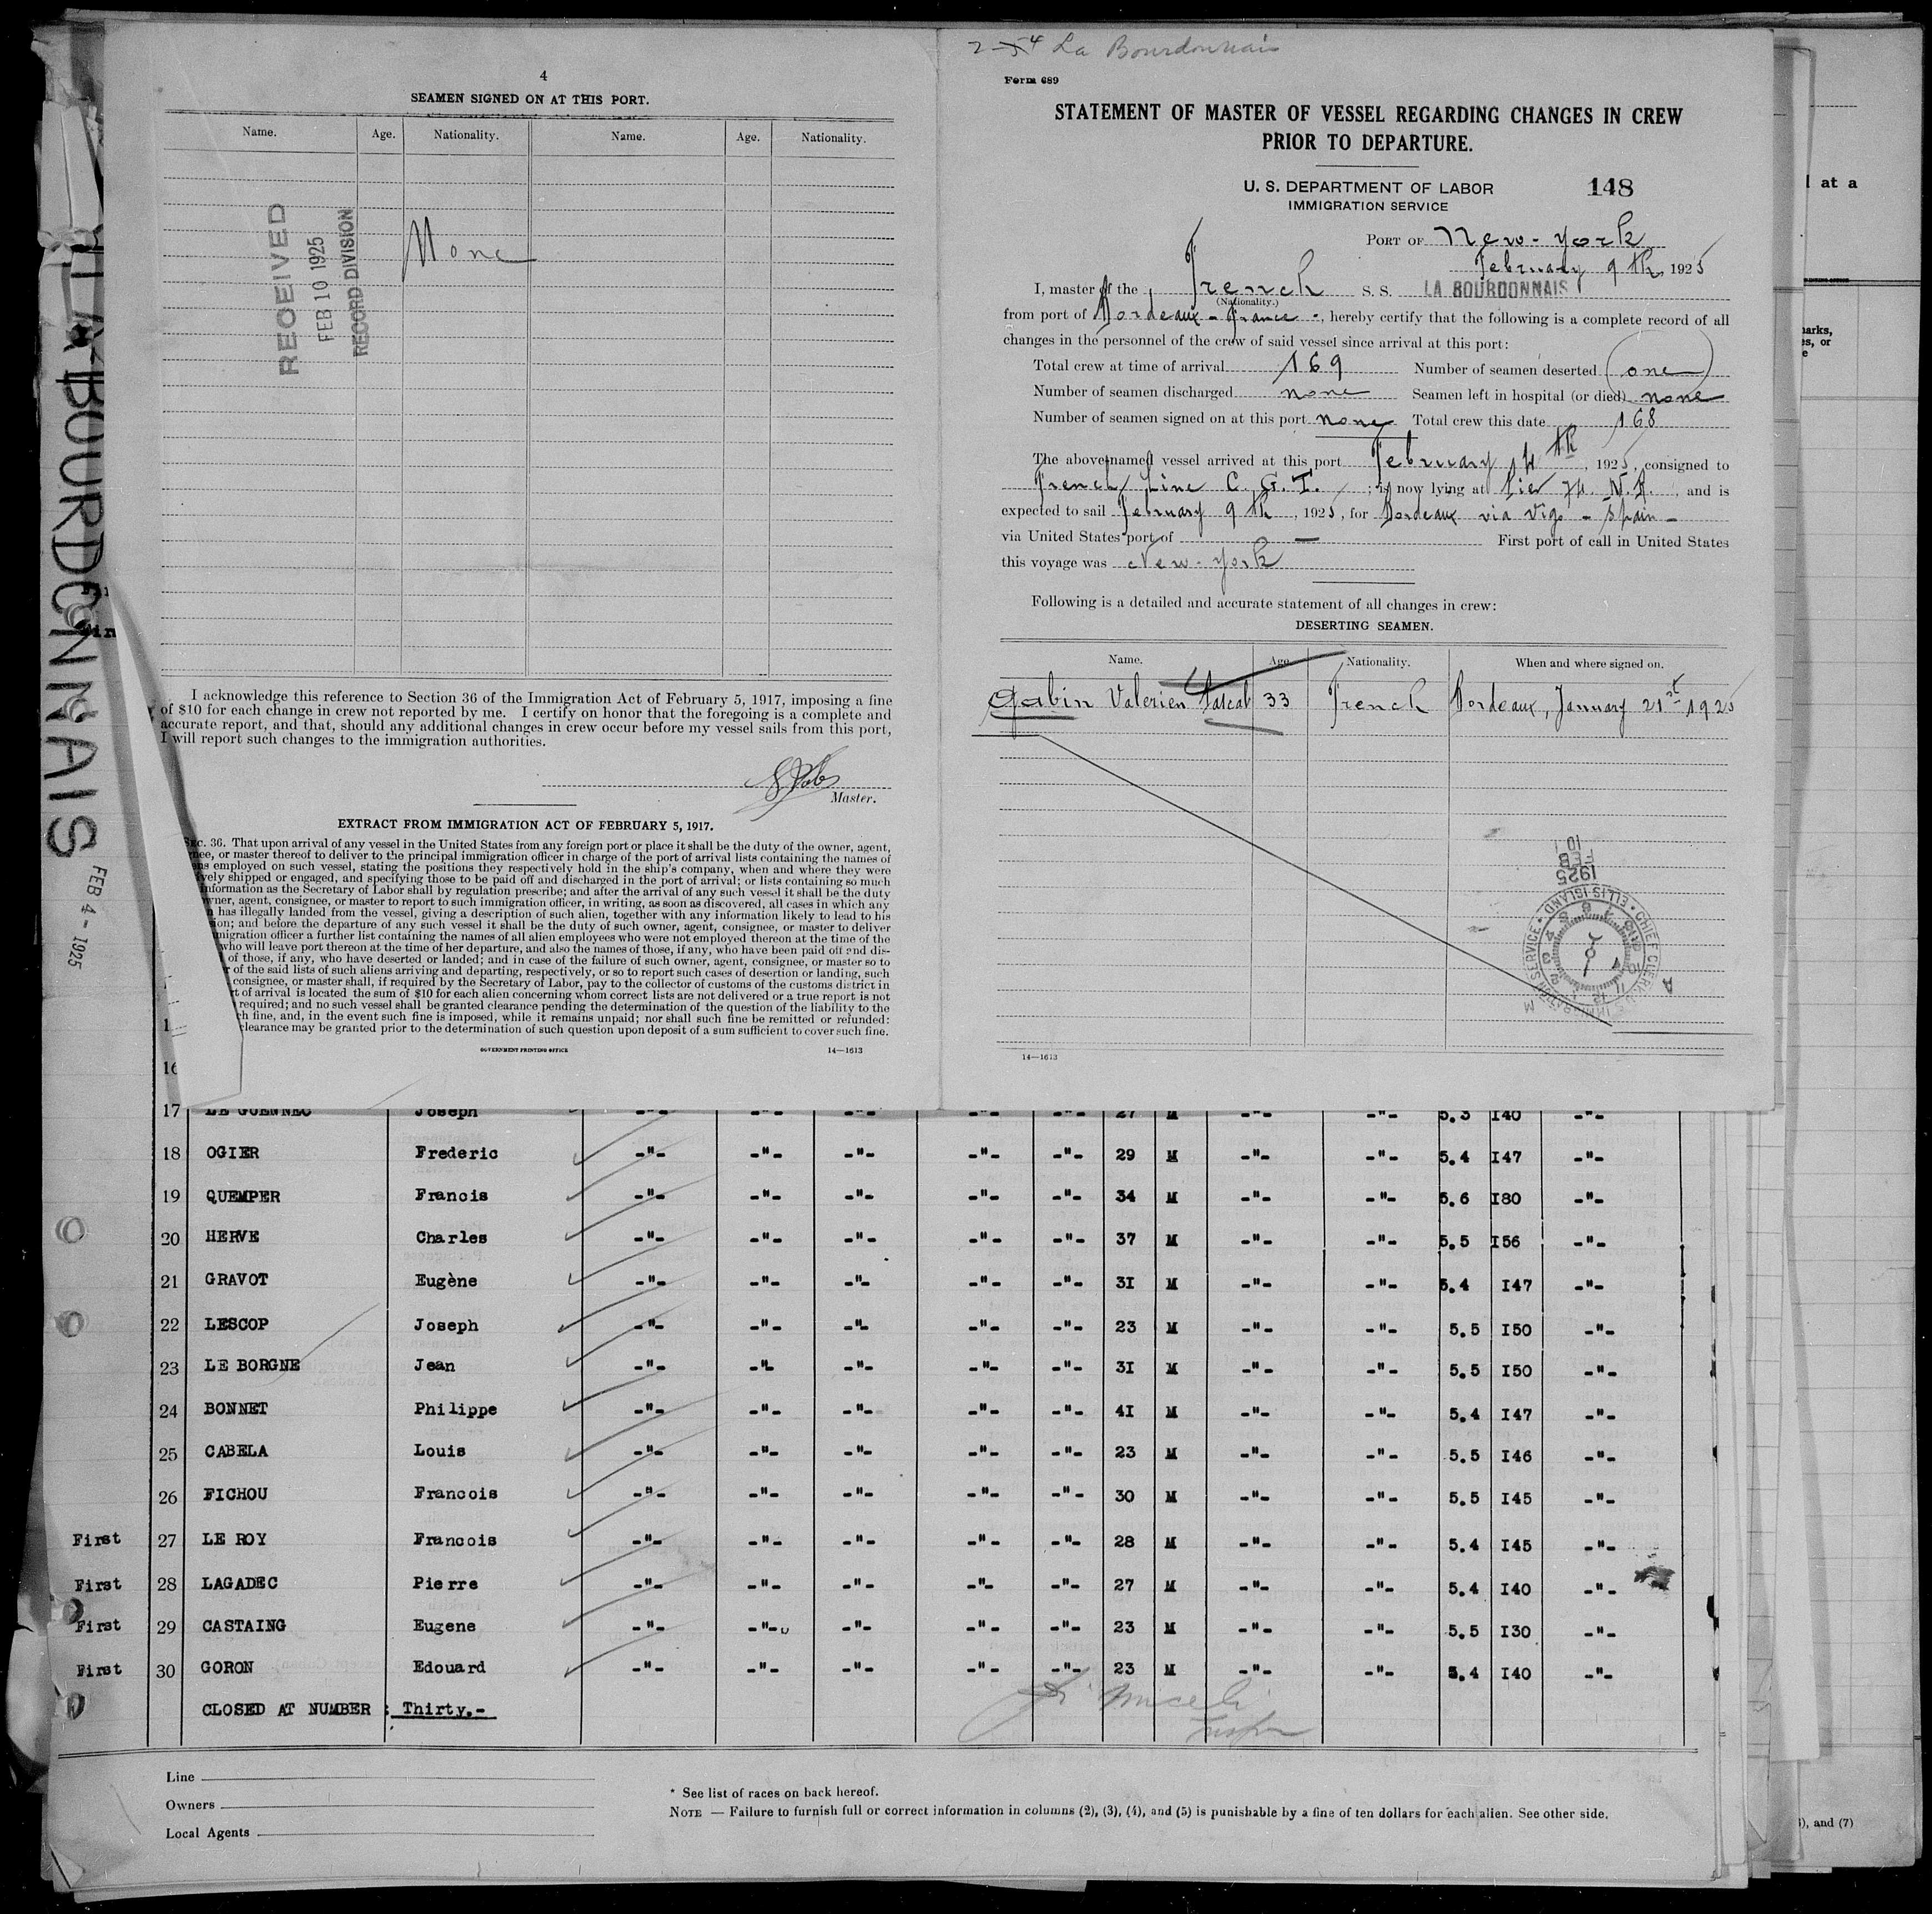 4
SEAMEN SIGNED ON AT THIS PORT.
Name. Age. Nationality. Name. Age. Nationality.
None
RECEIVED
FEB 10 1925
RECORD DIVISION
I acknowledge this reference to Section 36 of the Immigration Act of February 5, 1917, imposing a fine
of $10 for each change in crew not reported by me. I certify on honor that the foregoing is a complete and
accurate report, and that, should any additional changes in crew occur before my vessel sails from this port,
I will report such changes to the immigration authorities.
Master.
EXTRACT FROM IMMIGRATION ACT OF FEBRUARY 5, 1917.
SEC. 36. That upon arrival of any vessel in the United States from any foreign port or place it shall be the duty of the owner, agent,
nee, or master thereof to deliver to the principal immigration officer in charge of the port of arrival lists containing the names of
ns employed on such vessel, stating the positions they respectively hold in the ship's company, when and where they were
vely shipped or engaged, and specifying those to be paid off and discharged in the port of arrival; or lists containing so much
information as the Secretary of Labor shall by regulation prescribe; and after the arrival of any such vessel it shall be the duty
wner, agent, consignee, or master to report to such immigration officer, in writing, as soon as discovered, all cases in which any
n has illegally landed from the vessel, giving a description of such alien, together with any information likely to lead to his
ion; and before the departure of any such vessel it shall be the duty of such owner, agent, consignee, or master to deliver
migration officer a further list containing the names of all alien employees who were not employed thereon at the time of the
who will leave port thereon at the time of her departure, and also the names of those, if any, who have been paid off and dis-
of those, if any, who have deserted or landed; and in case of the failure of such owner, agent, consignee, or master so to
r of the said lists of such aliens arriving and departing, respectively, or so to report such cases of desertion or landing, such
consignee, or master shall, if required by the Secretary of Labor, pay to the collector of customs of the customs district in
rt of arrival is located the sum of $10 for each alien concerning whom correct lists are not delivered or a true report is not
required; and no such vessel shall be granted clearance pending the determination of the question of the liability to the
ch fine, and, in the event such fine is imposed, while it remains unpaid; nor shall such fine be remitted or refunded:
clearance may be granted prior to the determination of such question upon deposit of a sum sufficient to cover such fine.
GOVERNMENT PRINTING OFFICE 14—1613
La Bourdonnais
Form 689
STATEMENT OF MASTER OF VESSEL REGARDING CHANGES IN CREW
PRIOR TO DEPARTURE.
U. S. DEPARTMENT OF LABOR 148
IMMIGRATION SERVICE
PORT OF New-York
February 9th, 1925
I, master of the French S. S. LA BOURDONNAIS
(Nationality.)
from port of Bordeaux - France -, hereby certify that the following is a complete record of all
changes in the personnel of the crew of said vessel since arrival at this port:
Total crew at time of arrival 169 Number of seamen deserted one
Number of seamen discharged none Seamen left in hospital (or died) none
Number of seamen signed on at this port none Total crew this date 168
The above-named vessel arrived at this port February 4th, 1925, consigned to
French Line C. G. T.; is now lying at Pier 74 N. R., and is
expected to sail February 9th, 1925, for Bordeaux via Vigo - Spain -
via United States port of — First port of call in United States
this voyage was New-York
Following is a detailed and accurate statement of all changes in crew:
DESERTING SEAMEN.
Name. Age. Nationality. When and where signed on.
Gabin Valerien Pascal 33 French Bordeaux, January 21st 1925
1925
FEB
10
CHIEF CLERK
ELLIS ISLAND
14—1613
LA BOURDONNAIS
FEB 4 - 1925
l at a
arks,
es, or
e
16
17 LE GUENNEC Joseph -"- -"- -"- -"- -"- 27 M -"- -"- 5.3 I40 -"-
18 OGIER Frederic -"- -"- -"- -"- -"- 29 M -"- -"- 5.4 I47 -"-
19 QUEMPER Francis -"- -"- -"- -"- -"- 34 M -"- -"- 5.6 I80 -"-
20 HERVE Charles -"- -"- -"- -"- -"- 37 M -"- -"- 5.5 I56 -"-
21 GRAVOT Eugène -"- -"- -"- -"- -"- 3I M -"- -"- 5.4 I47 -"-
22 LESCOP Joseph -"- -"- -"- -"- -"- 23 M -"- -"- 5.5 I50 -"-
23 LE BORGNE Jean -"- -"- -"- -"- -"- 3I M -"- -"- 5.5 I50 -"-
24 BONNET Philippe -"- -"- -"- -"- -"- 4I M -"- -"- 5.4 I47 -"-
25 CABELA Louis -"- -"- -"- -"- -"- 23 M -"- -"- 5.5 I46 -"-
26 FICHOU Francois -"- -"- -"- -"- -"- 30 M -"- -"- 5.5 I45 -"-
First 27 LE ROY Francois -"- -"- -"- -"- -"- 28 M -"- -"- 5.4 I45 -"-
First 28 LAGADEC Pierre -"- -"- -"- -"- -"- 27 M -"- -"- 5.4 I40 -"-
First 29 CASTAING Eugene -"- -"- -"- -"- -"- 23 M -"- -"- 5.5 I30 -"-
First 30 GORON Edouard -"- -"- -"- -"- -"- 23 M -"- -"- 5.4 I40 -"-
CLOSED AT NUMBER : Thirty.-
Line
Owners
Local Agents
* See list of races on back hereof.
NOTE — Failure to furnish full or correct information in columns (2), (3), (4), and (5) is punishable by a fine of ten dollars for each alien. See other side.
), and (7)